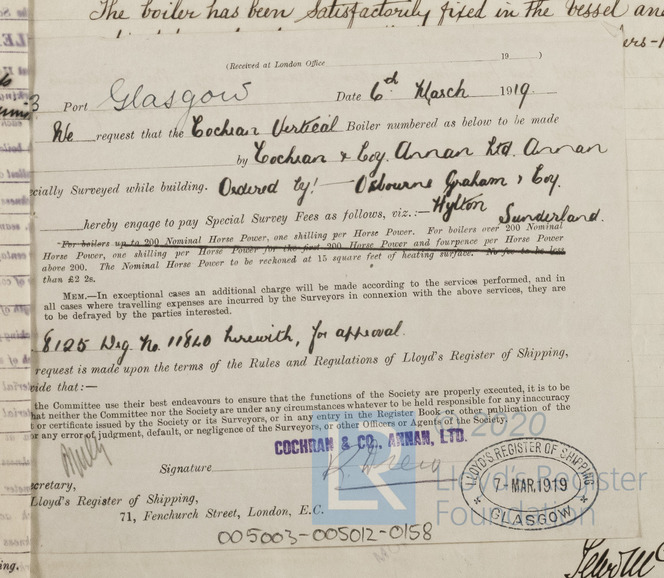 The boiler has been satisfactorily fixed in the vessel and
(Received at London Office 19 )
Port Glasgow Date 6th March 1919.
We request that the Cochran Vertical Boiler numbered as below to be made
by Cochran & Coy. Annan Ltd. Annan
cially Surveyed while building. Ordered by:- Osbourne Graham & Coy.
hereby engage to pay Special Survey Fees as follows, viz.:— Hylton
Sunderland.
For boilers up to 200 Nominal Horse Power, one shilling per Horse Power. For boilers over 200 Nominal
Horse Power, one shilling per Horse Power for the first 200 Horse Power and fourpence per Horse Power
above 200. The Nominal Horse Power to be reckoned at 15 square feet of heating surface. No fee to be less
than £2 2s.
MEM.—In exceptional cases an additional charge will be made according to the services performed, and in
all cases where travelling expenses are incurred by the Surveyors in connexion with the above services, they are
to be defrayed by the parties interested.
8125 Drg. No. 11840 herewith, for approval.
request is made upon the terms of the Rules and Regulations of Lloyd's Register of Shipping,
vide that:—
the Committee use their best endeavours to ensure that the functions of the Society are properly executed, it is to be
hat neither the Committee nor the Society are under any circumstances whatever to be held responsible for any inaccuracy
t or certificate issued by the Society or its Surveyors, or in any entry in the Register Book or other publication of the
or any error of judgment, default, or negligence of the Surveyors, or other Officers or Agents of the Society.
© 2020
COCHRAN & CO., ANNAN, LTD.
Signature
LLOYD'S REGISTER OF SHIPPING
7-MAR.1919
GLASGOW
LR
Lloyd's Register
Foundation
cretary,
Lloyd's Register of Shipping,
71, Fenchurch Street, London, E.C.
005003-005012-0158